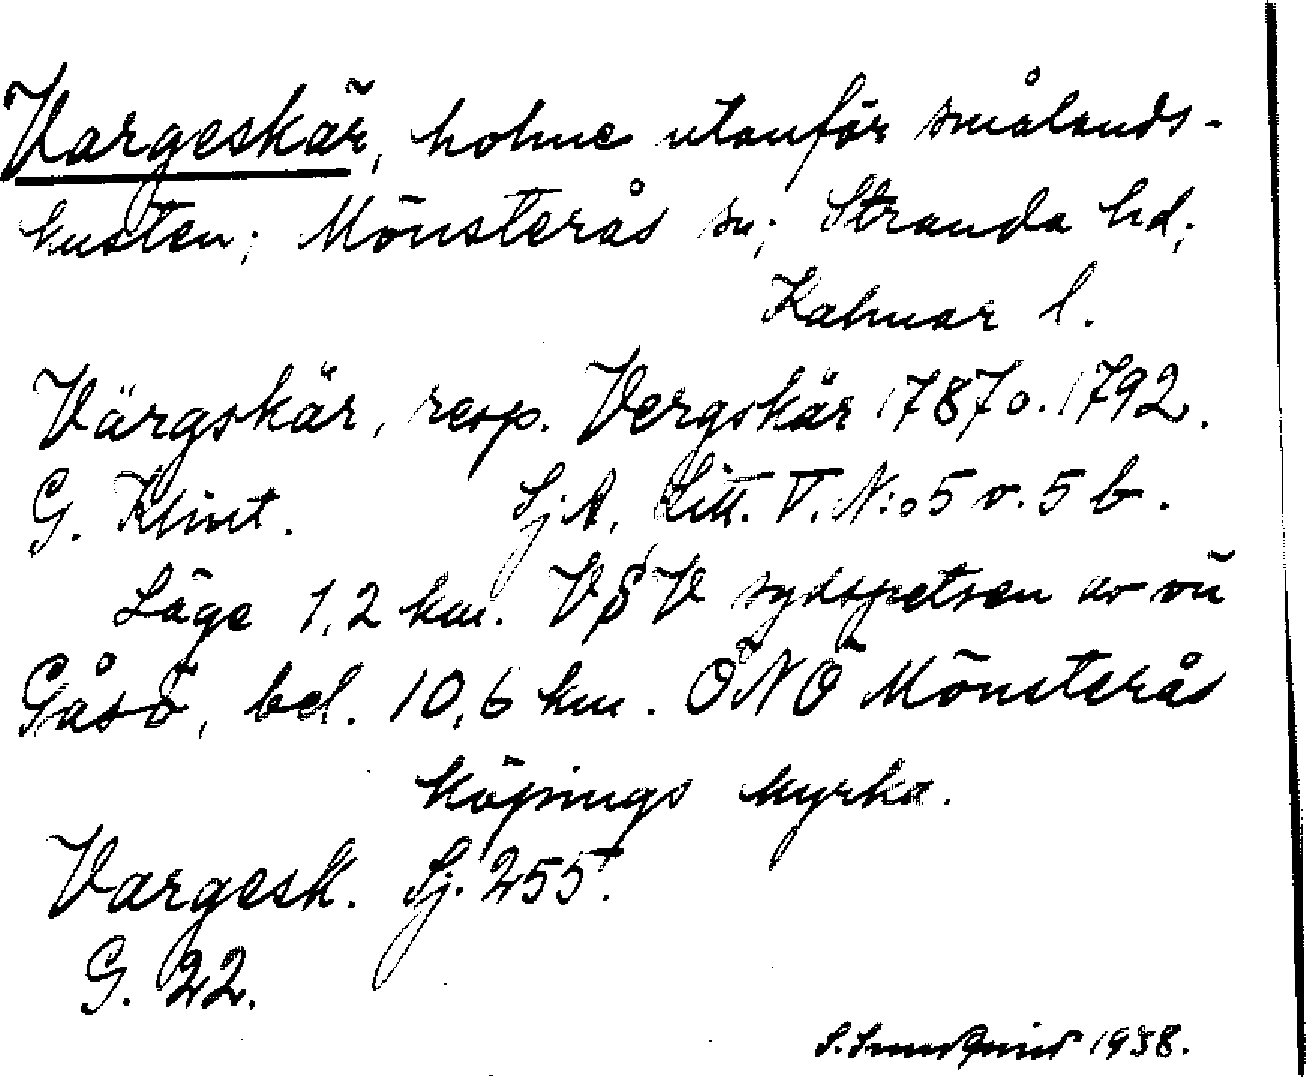 Vargeskär, holme utanför smålands-
kusten; Mönsterås sn; Stranda hd;
Kalmar l.
Värgskär, resp. Vergskär 1787 o. 1792.
G. Klint. Sj.A. Litt. V. N:o 5 o. 5 b.
Läge 1,2 km. VSV sydspetsen av ön
Gåsö, bel. 10,6 km. ÖNÖ Mönsterås
köpings kyrka.
Vargesk. Sj. 255.
G. 22.
S. 1938.